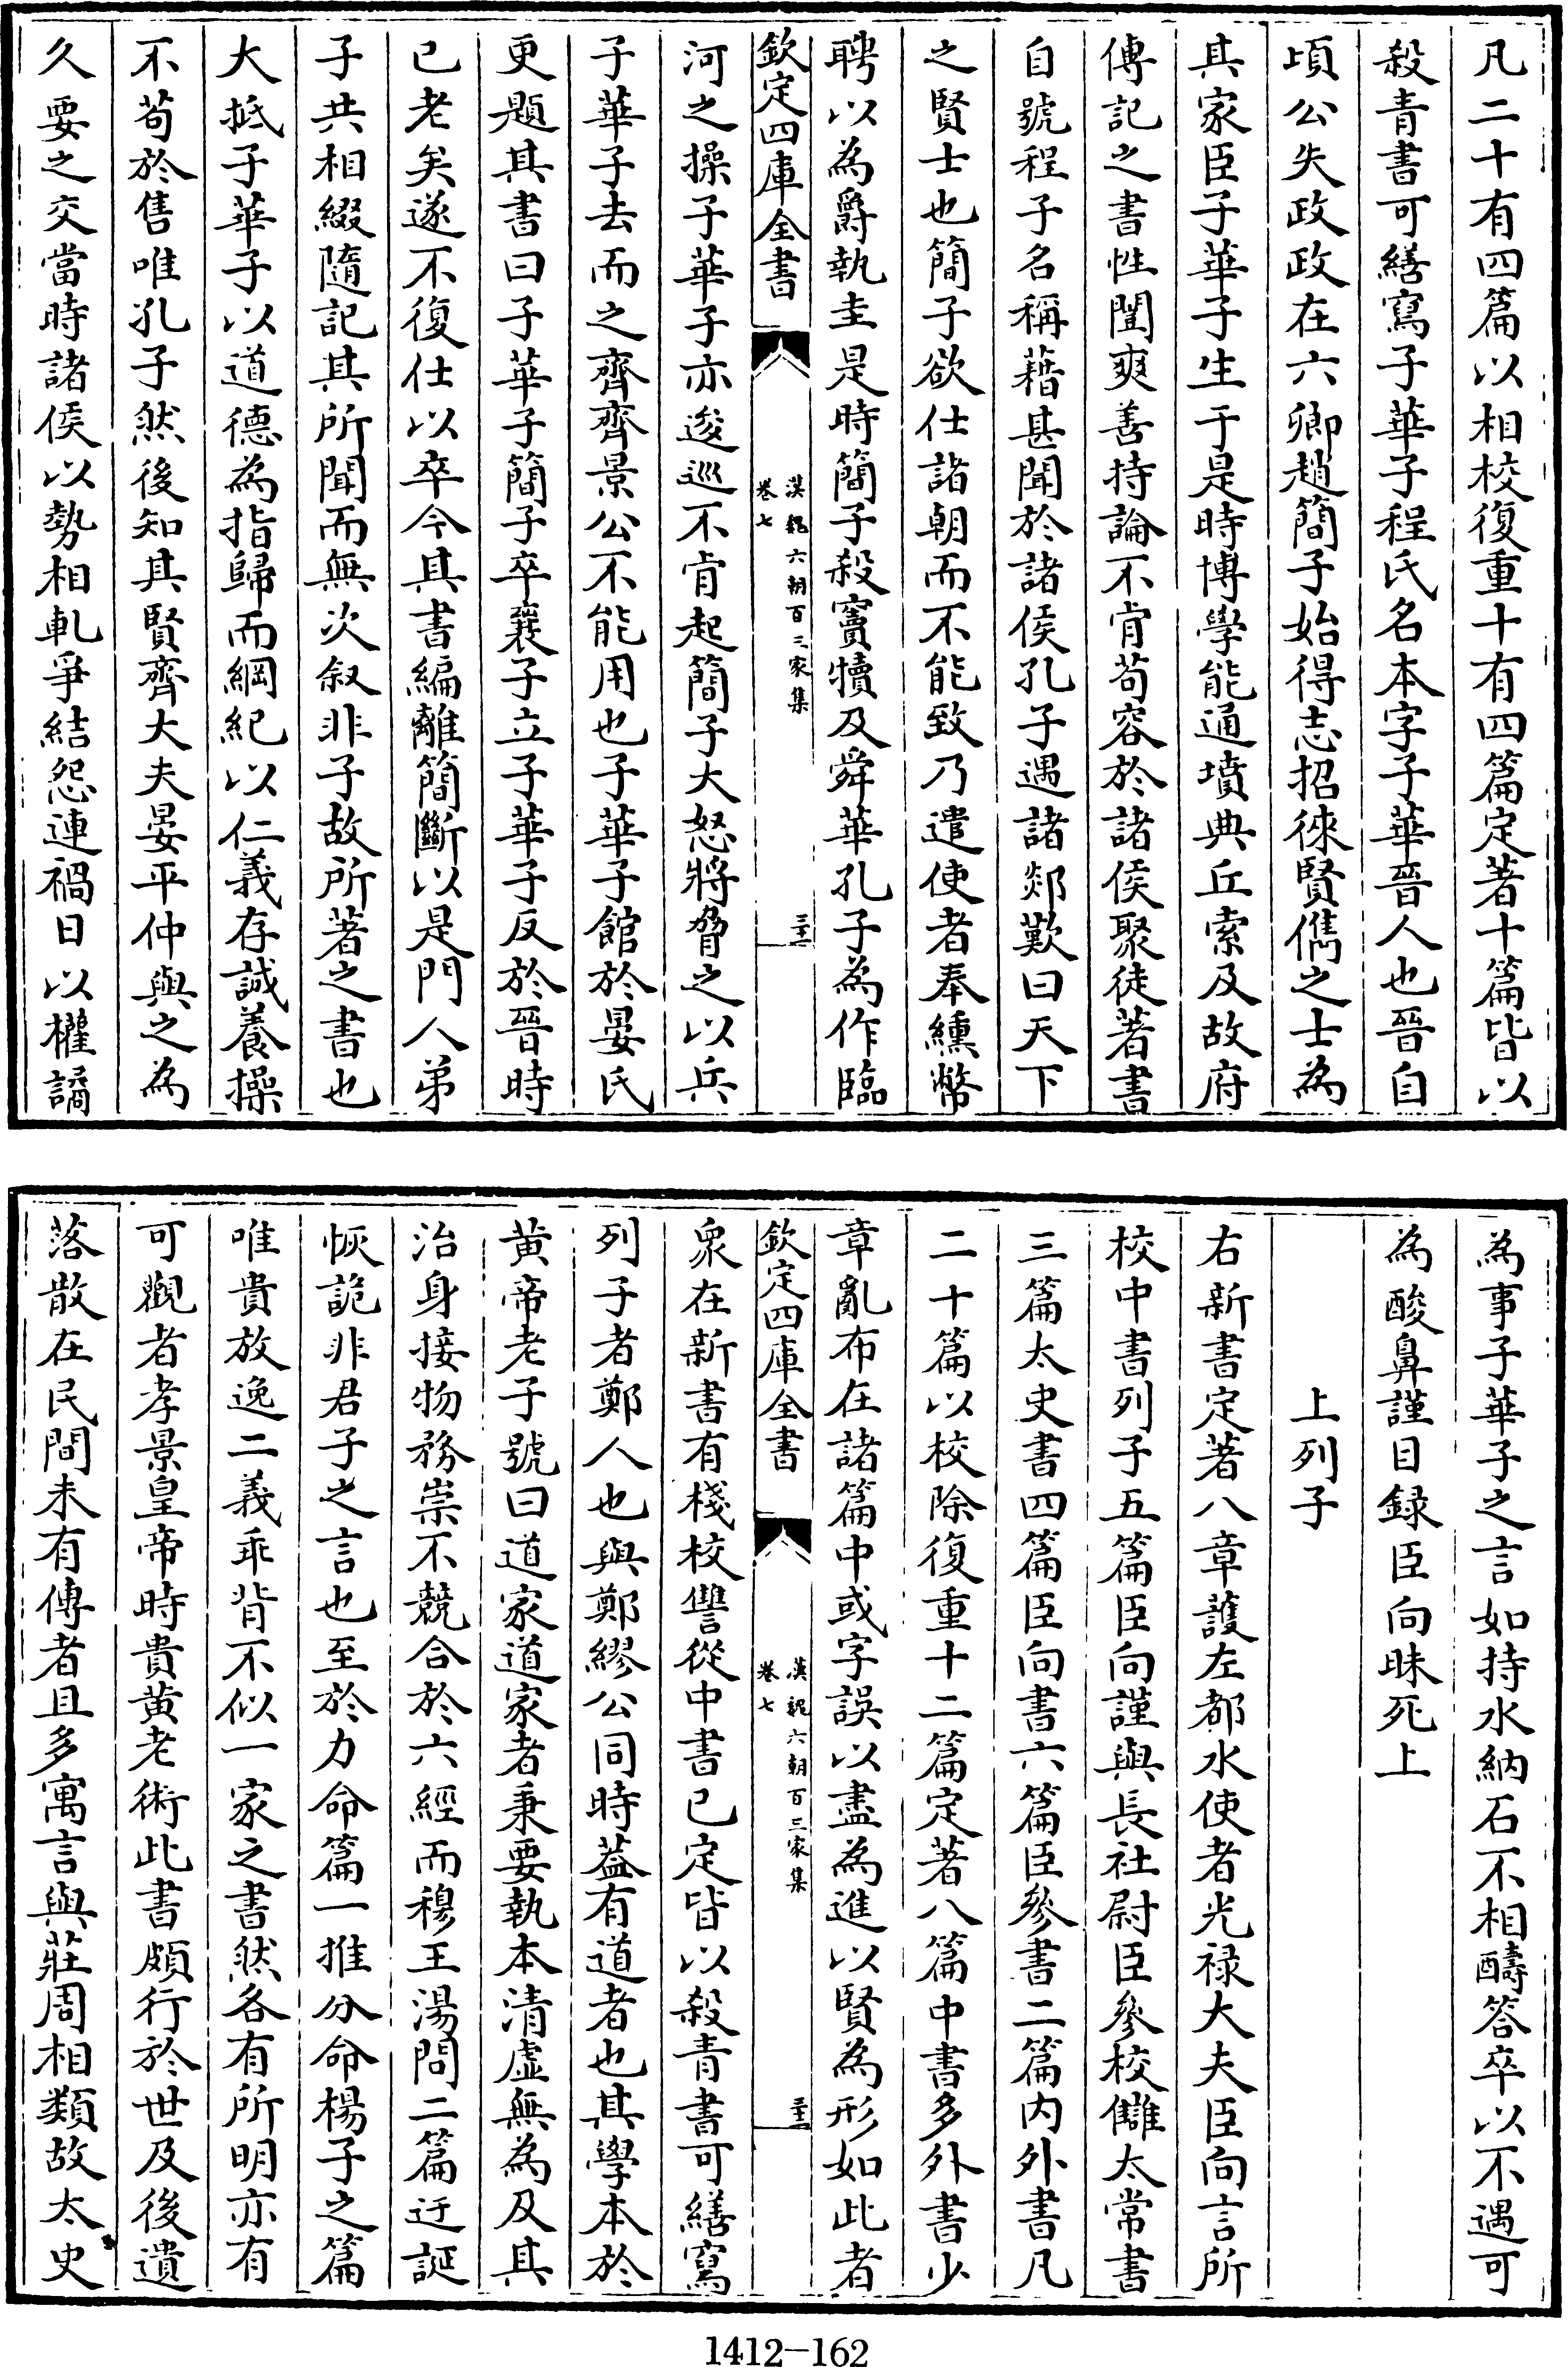 凡二十有四篇以相校復重十有四篇定著十篇皆以
殺青書可繕寫子華子程氏名本字子華晉人也晉自
頃公失政政在六卿趙簡子始得志招徠賢儁之士為
其家臣子華子生于是時博學能通墳典丘索及故府
傳記之書性闓爽善持論不肯苟容於諸侯聚徒著書
自號程子名稱藉甚聞於諸侯孔子遇諸郯歎曰天下
之賢士也簡子欲仕諸朝而不能致乃遣使者奉纁幣
聘以為爵執圭是時簡子殺竇犢及舜華孔子為作臨
欽定四庫全書
漢魏六朝百三家集
卷七
三十一
河之操子華子亦逡巡不肯起簡子大怒將脅之以兵
子華子去而之齊齊景公不能用也子華子館於晏氏
更題其書曰子華子簡子卒襄子立子華子反於晉時
已老矣遂不復仕以卒今其書編離簡斷以是門人弟
子共相綴隨記其所聞而無次叙非子故所著之書也
大抵子華子以道德為指歸而綱紀以仁義存誠養操
不苟於售唯孔子然後知其賢齊大夫晏平仲與之為
久要之交當時諸侯以勢相軋爭結怨連禍日以權譎
為事子華子之言如持水納石不相醻答卒以不遇可
為酸鼻謹目録臣向昧死上
上列子
右新書定著八章護左都水使者光禄大夫臣向言所
校中書列子五篇臣向謹與長社尉臣參校讎太常書
三篇太史書四篇臣向書六篇臣參書二篇内外書凡
二十篇以校除復重十二篇定著八篇中書多外書少
章亂布在諸篇中或字誤以盡為進以賢為形如此者
欽定四庫全書
漢魏六朝百三家集
卷七
三十二
衆在新書有棧校讐從中書已定皆以殺青書可繕寫
列子者鄭人也與鄭繆公同時葢有道者也其學本於
黄帝老子號曰道家道家者秉要執本清虚無為及其
治身接物務崇不競合於六經而穆王湯問二篇迂誕
恢詭非君子之言也至於力命篇一推分命楊子之篇
唯貴放逸二義乖背不似一家之書然各有所明亦有
可觀者孝景皇帝時貴黄老術此書頗行於世及後遺
落散在民間未有傳者且多寓言與莊周相類故太史
1412-162